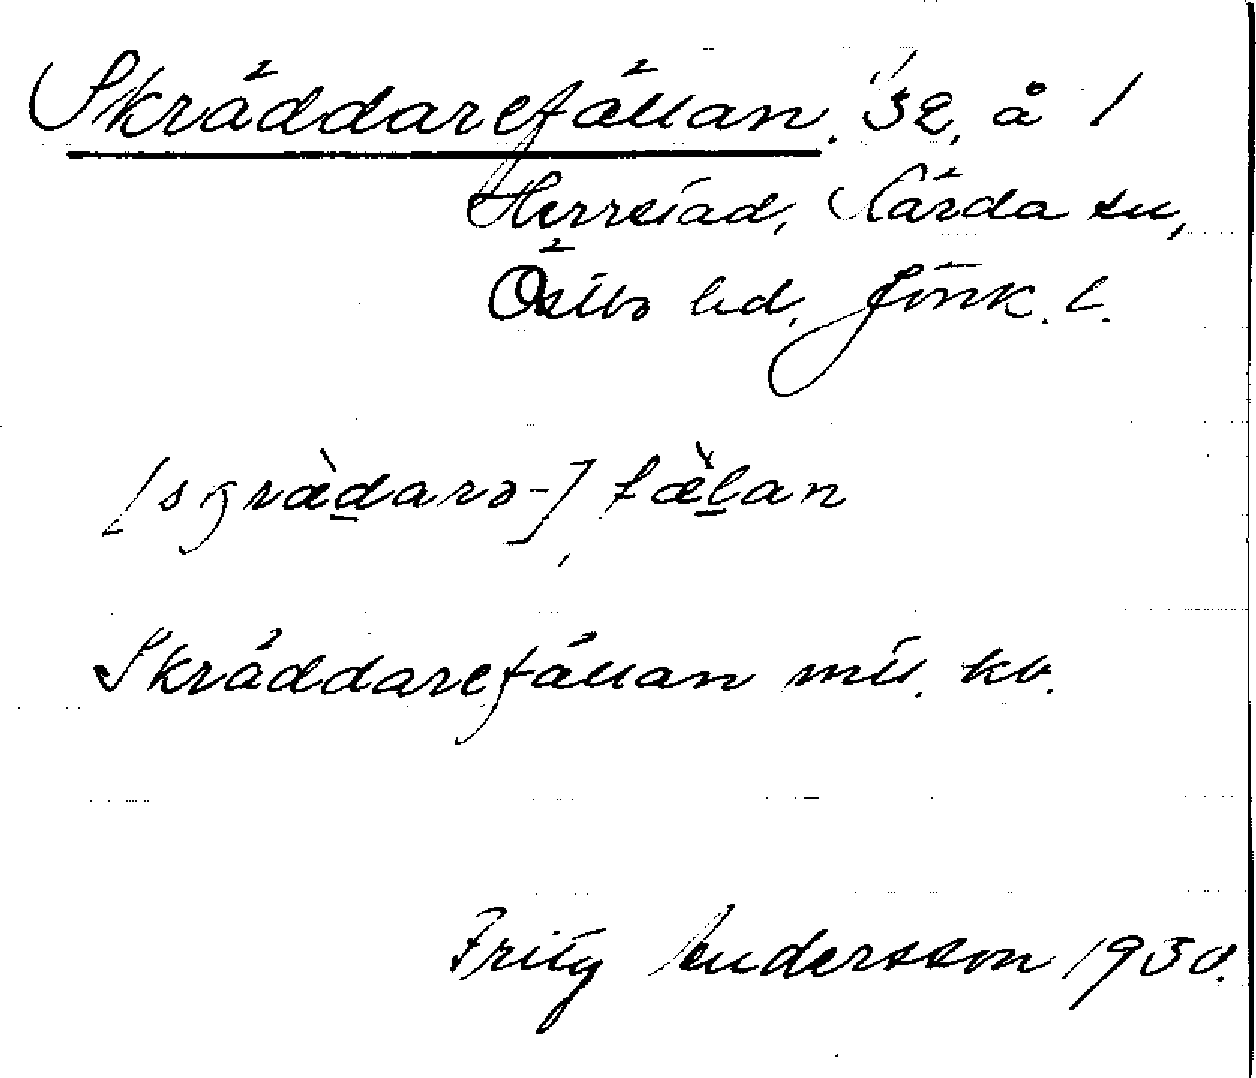 Skräddarefällan. 32, å 1
Herrestad, Kärda sn,
Östbo hd, Jönk. l.
[sgrädarə-] fälan
Skräddarefällan mtl. kb.
Fritz Andersson 1930.